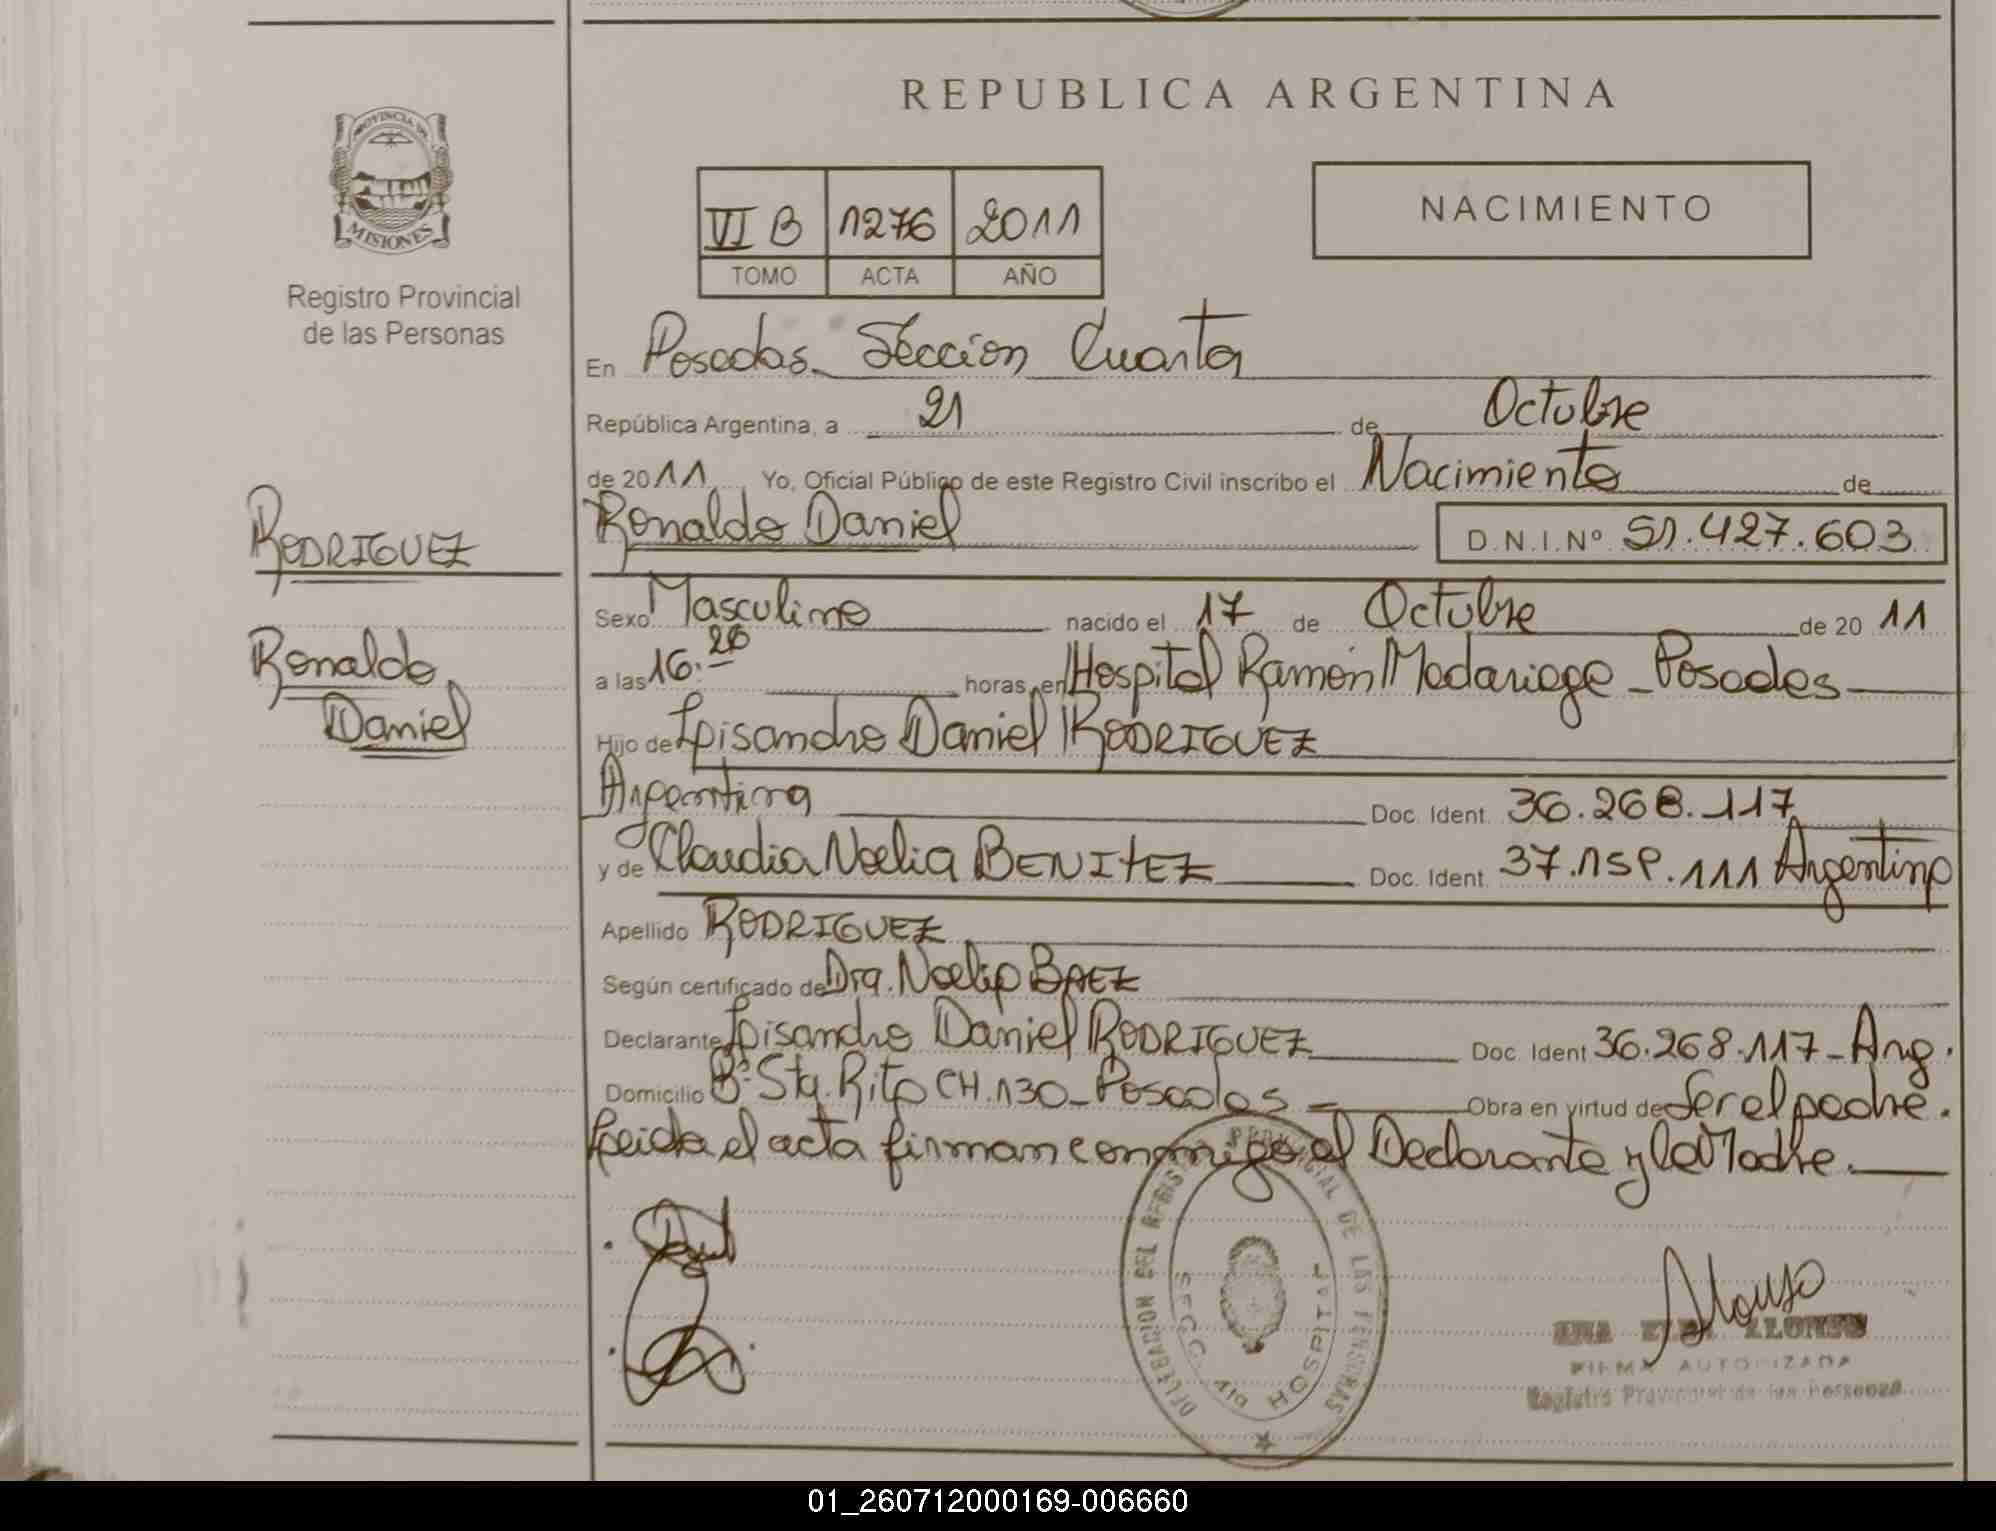 REPUBLICA ARGENTINA
PROVINCIA DE
MISIONES
Registro Provincial
de las Personas
VI B 1276 2011
TOMO ACTA AÑO
NACIMIENTO
En Posadas. Sección Cuarta
República Argentina, a 21 de Octubre
de 2011 Yo, Oficial Público de este Registro Civil inscribo el Nacimiento de
RODRIGUEZ
Ronaldo
Daniel
Ronaldo Daniel D.N.I.Nº 51.427.603
Sexo Masculino nacido el 17 de Octubre de 2011
a las 16.20 horas, en Hospital Ramón Madariaga - Posadas
Hijo de Lisandro Daniel RODRIGUEZ
Argentina Doc. Ident. 36.268.117
y de Claudia Noelia BENITEZ Doc. Ident. 37.159.111 Argentina
Apellido RODRIGUEZ
Según certificado de Dra. Noelia BAEZ
Declarante Lisandro Daniel RODRIGUEZ Doc. Ident 36.268.117 - Arg.
Domicilio Bº Sta. Rita CH. 130 - Posadas Obra en virtud de Ser el padre.
Leida el acta firman conmigo el Declarante y la Madre.
PROVINCIAL DE LAS PERSONAS
HOSPITAL
Alonso
ALONSO
FIRMA AUTORIZADA
Registro Provincial de las Personas
01_260712000169-006660